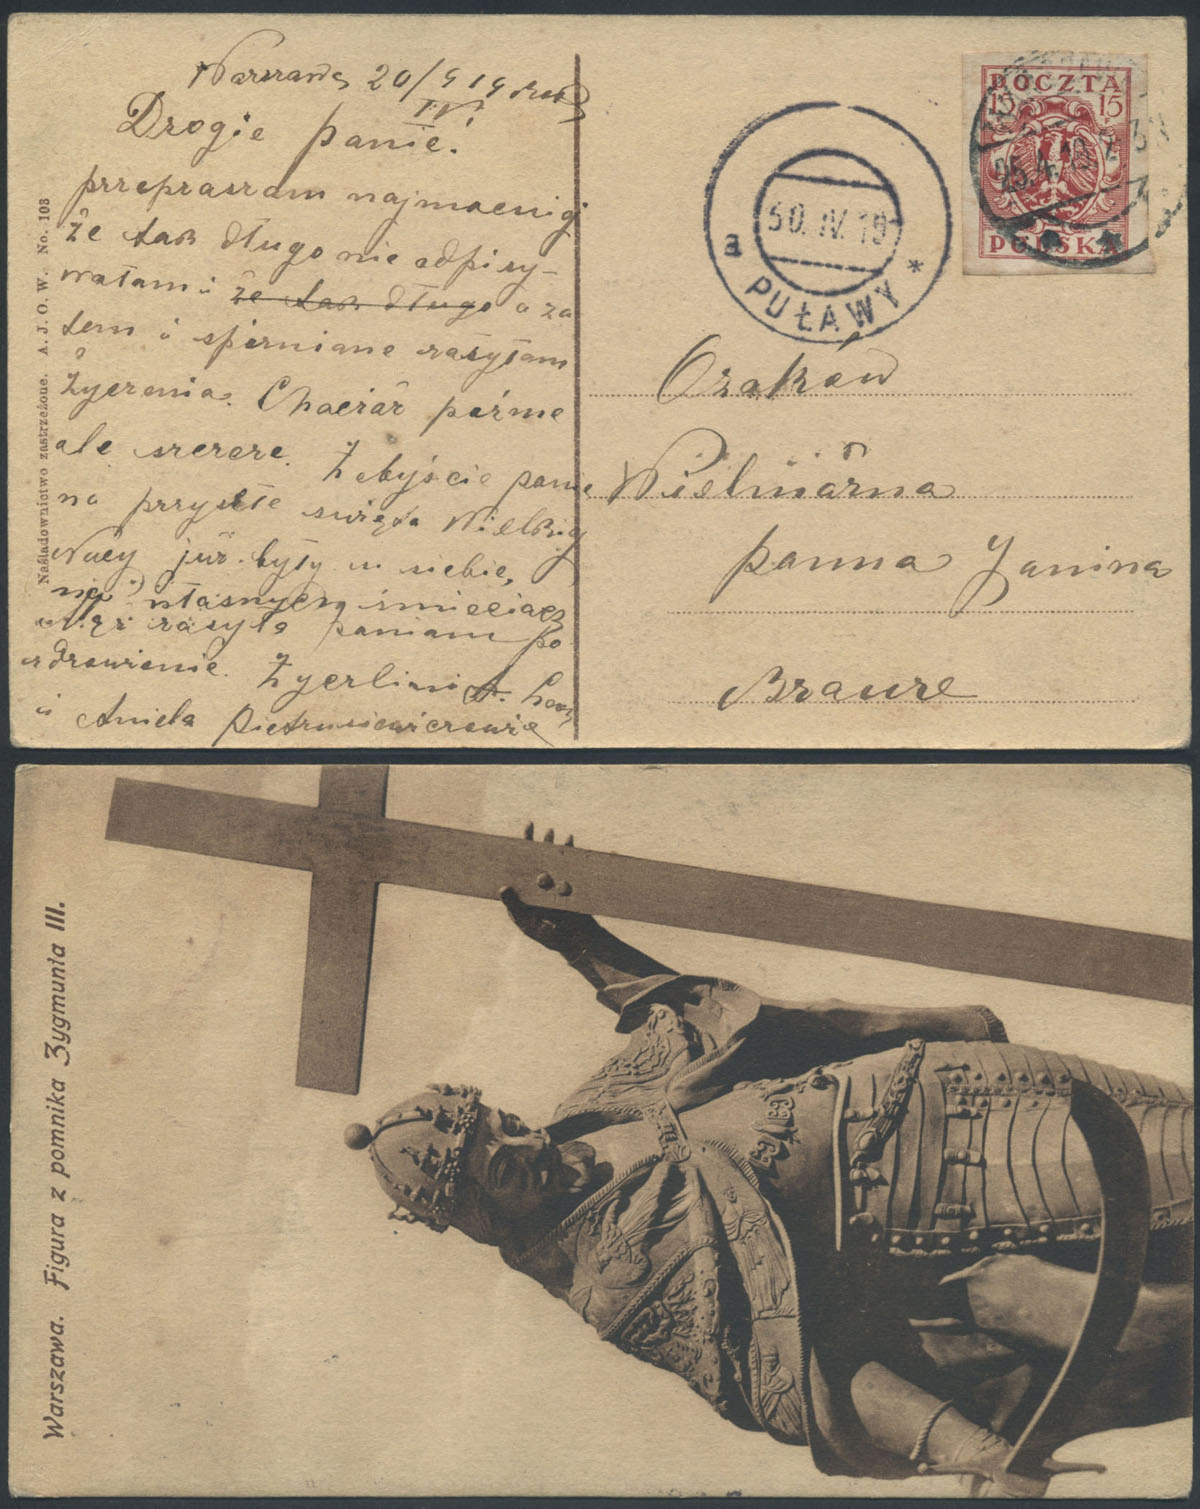 Warszawa 20/IV 1919 roku
Drogie panie!
przepraszam najmocnij
że tak długo nie odpisy-
wałam i że tak długo a za
tem i spuzniane zasyłam
życzenia. Chociaż poźne
ale szczere. Żebyście panie
na przyszłe swięta Wielkij
Nocy już były u siebie,
na własnych śmieciach
zasyła paniam po-
zdrowienie. Życzliwi
i Aniela Pietrusiewiczowie
Naśladownictwo zastrzeżone. A. J. O. W. No. 103
POCZTA
15 15
POLSKA
25.4.19.7
30. IV. 19
a PUŁAWY *
Wielmożna
panna Janina
Brauze
Warszawa. Figura z pomnika Zygmunta III.